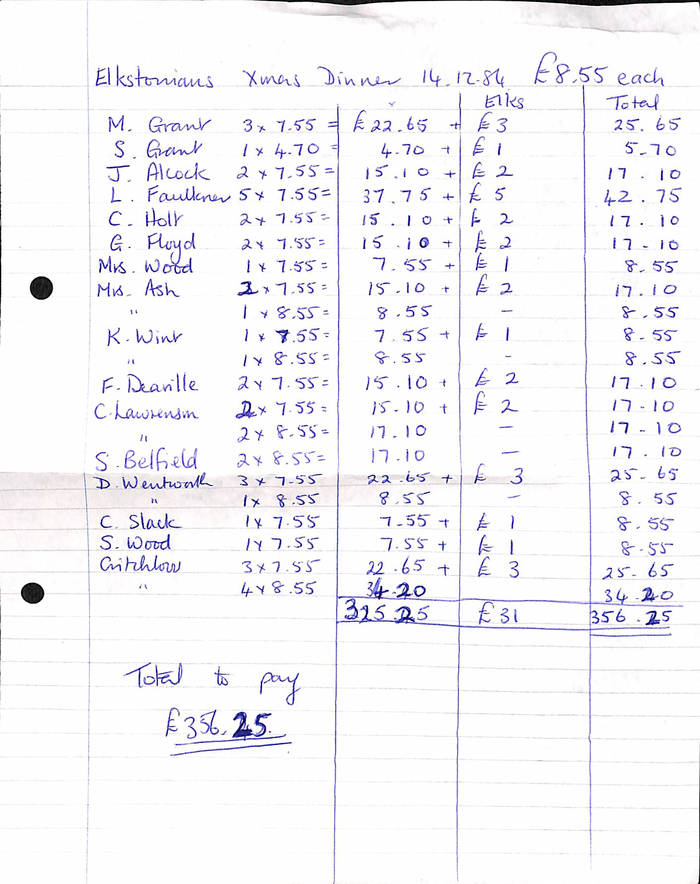 Elkstonians Xmas Dinner 14.12.84 £8.55 each
Elks Total
M. Grant 3 x 7.55 = £22.65 + £3 25.65
S. Grant 1 x 4.70 = 4.70 + £1 5-70
J. Alcock 2 x 7.55 = 15.10 + £2 17.10
L. Faulkner 5 x 7.55 = 37.75 + £5 42.75
C. Holt 2 x 7.55 = 15.10 + £2 17.10
G. Floyd 2 x 7.55 = 15.10 + £2 17-10
Mrs. Wood 1 x 7.55 = 7.55 + £1 8.55
Mrs. Ash 2 x 7.55 = 15.10 + £2 17.10
" 1 x 8.55 = 8.55 - 8.55
K. Wint 1 x 7.55 = 7.55 + £1 8-55
" 1 x 8.55 = 8.55 - 8.55
F. Deaville 2 x 7.55 = 15.10 + £2 17.10
C. Lawrenson 2 x 7.55 = 15-10 + £2 17-10
" 2 x 8.55 = 17.10 - 17-10
S. Belfield 2 x 8.55 = 17.10 - 17.10
D. Wentworth 3 x 7.55 22.65 + £3 25-65
" 1 x 8.55 8.55 - 8.55
C. Slack 1 x 7.55 7.55 + £1 8.55
S. Wood 1 x 7.55 7.55 + £1 8.55
Critchlow 3 x 7.55 22.65 + £3 25-65
" 4 x 8.55 34.20 34.20
325.25 £31 356.25
Total to pay
£356.25